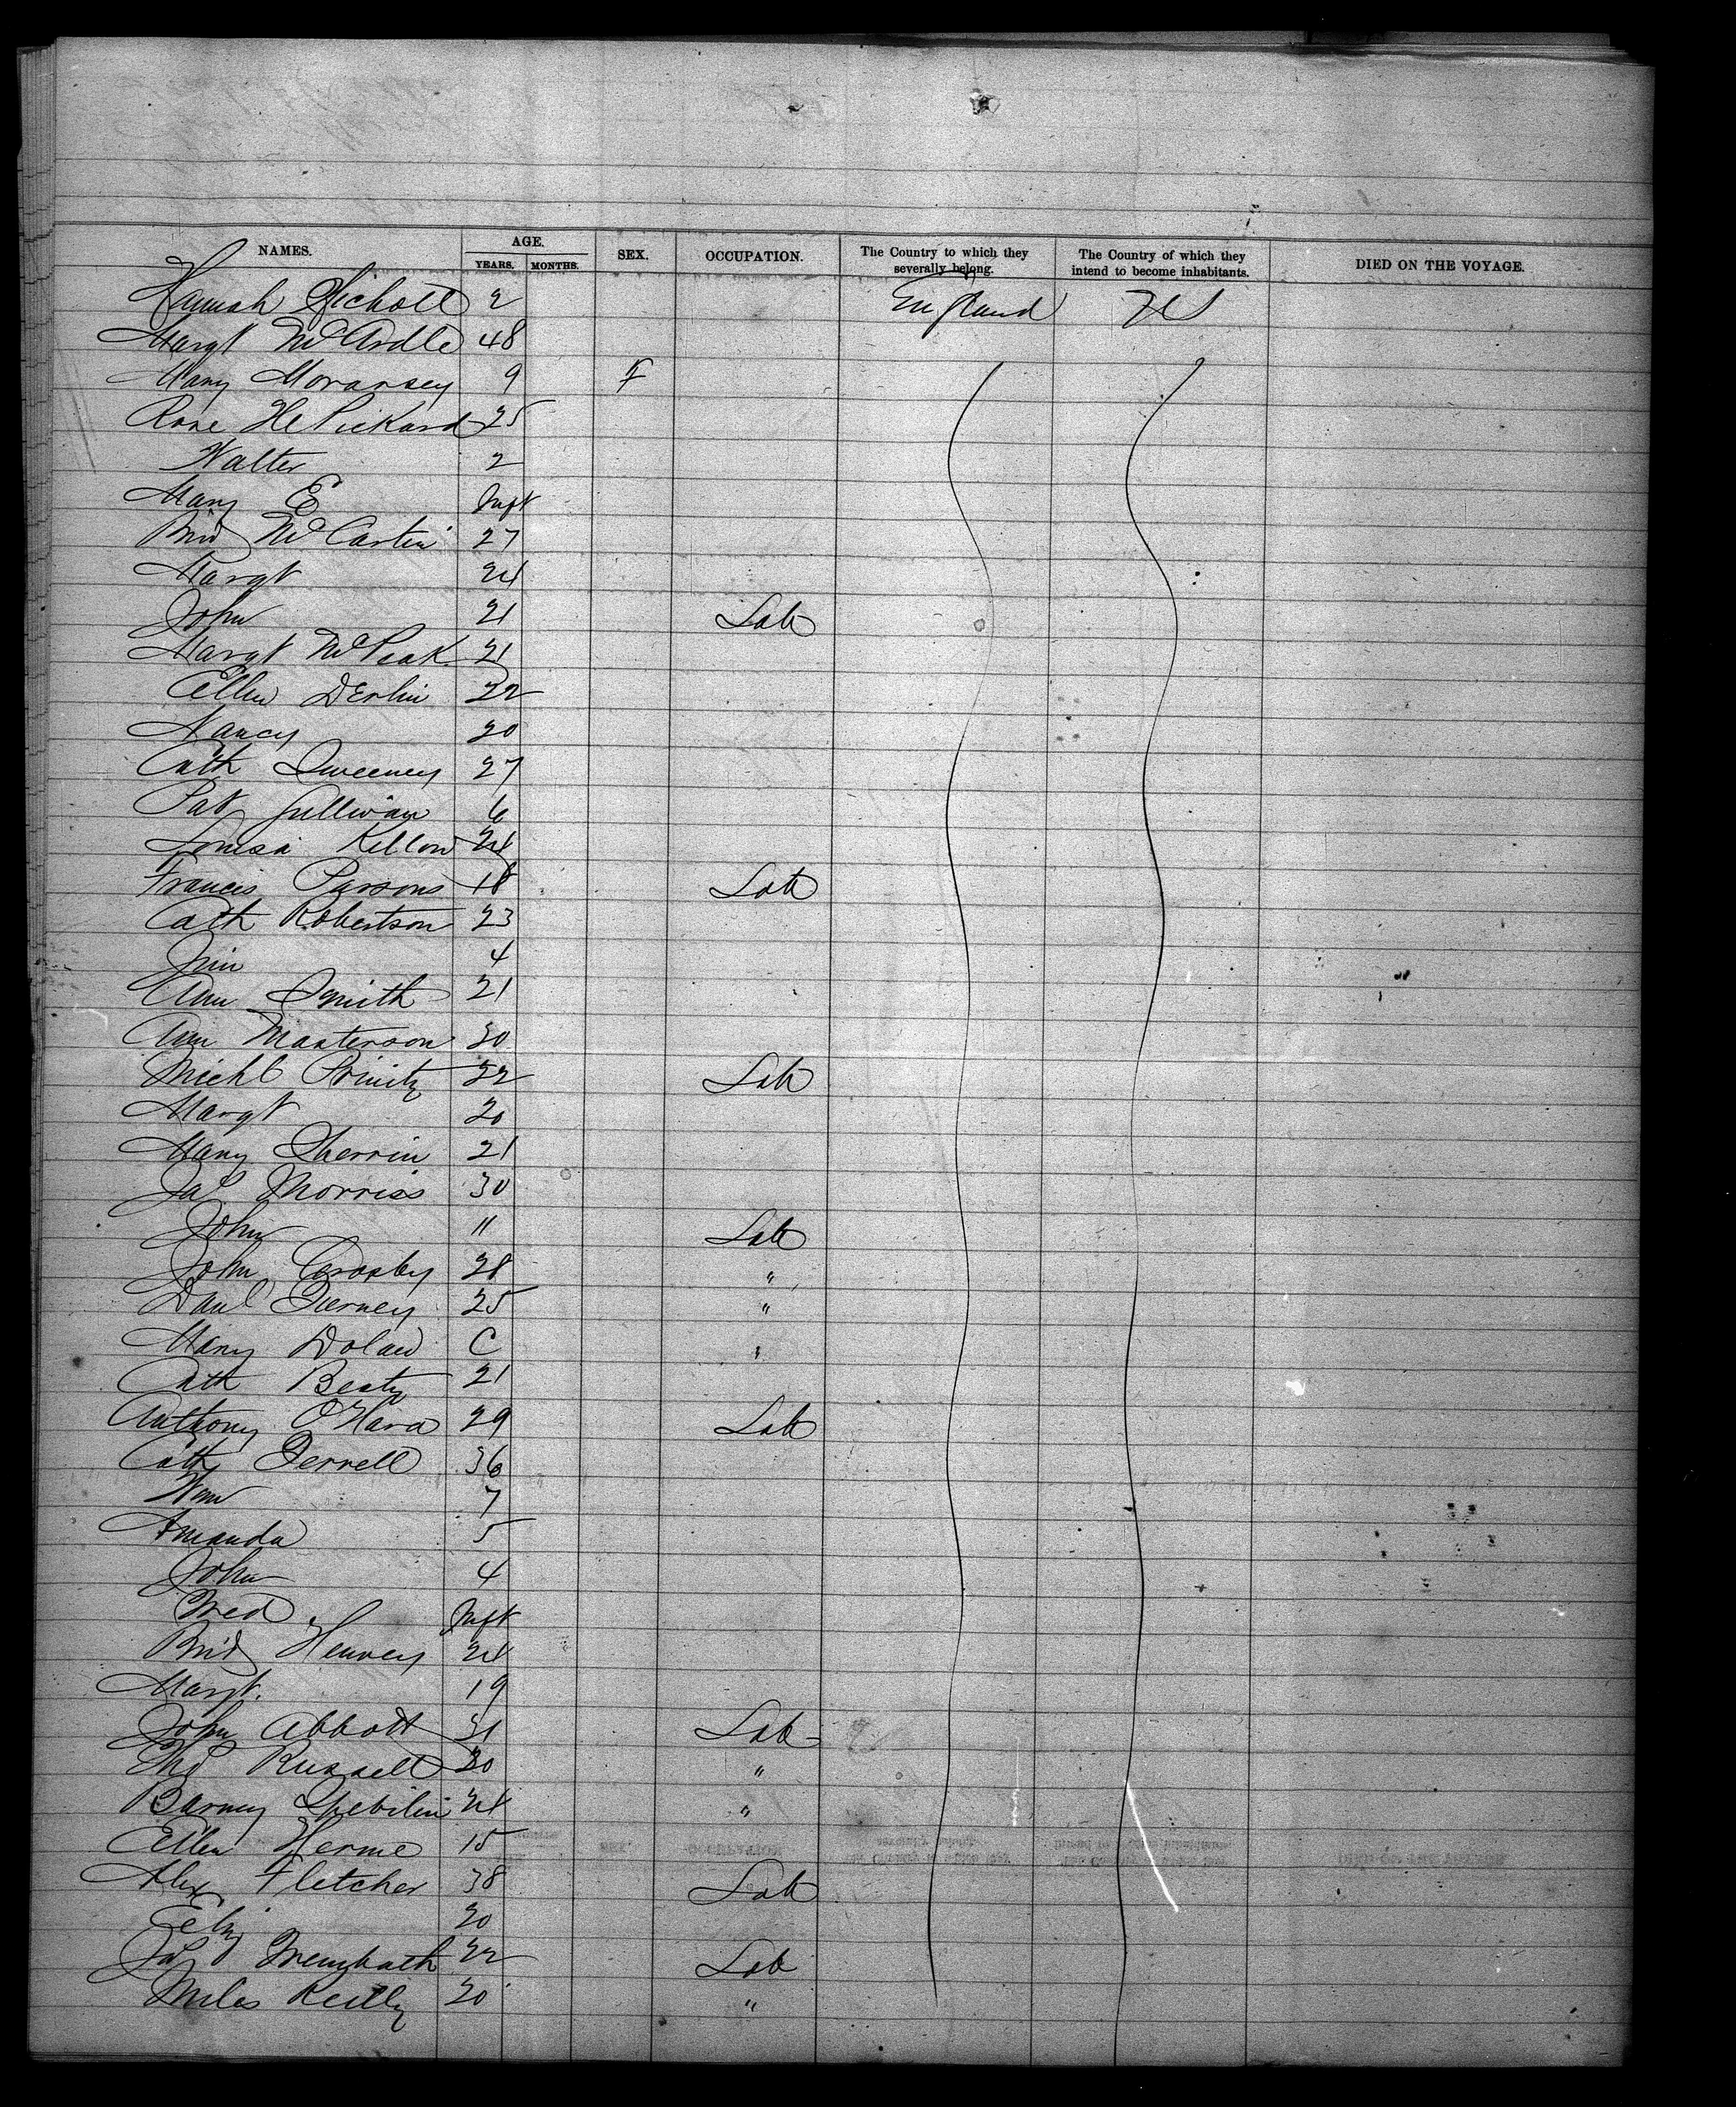 NAMES. AGE. SEX. OCCUPATION. The Country to which they severally belong. The Country of which they intend to become inhabitants. DIED ON THE VOYAGE.
YEARS. MONTHS.
Hannah 2 England US
Margt McArdle 48
Mary Moransey 9 F
Rose He Pickard 25
Walter 2
Mary E Inft
Brid McCartin 27
Margt 24
John 21 Lab
Margt McPeak 21
Ellen Devlin 22
Nancy 20
Cath Sweeney 27
Pat Sullivan 6
Louisa Kellow 24
Francis Parsons 18 Lab
Cath Robertson 23
Jim 4
Ann Smith 21
Ann Masterson 30
Michl Prinity 22 Lab
Margt 20
Mary Sherrin 21
Jas Morriss 30
John 11 Lab
John Crosby 28 "
Danl Tierney 25 "
Mary Dolan C "
Cath Beaty 21
Anthony O'Hara 29 Lab
Cath Ferrell 36
Wm 7
Amanda 5
John 4
Fred Inft
Brid Henvey 24
Margt. 19
John Abbott 31 Lab
Thos Russell 30 "
Barney 24 "
Ellen Herme 15
Alex Fletcher 38 Lab
Eliz 20
Jas Trembath 22 Lab
Miles Reilly 20 "